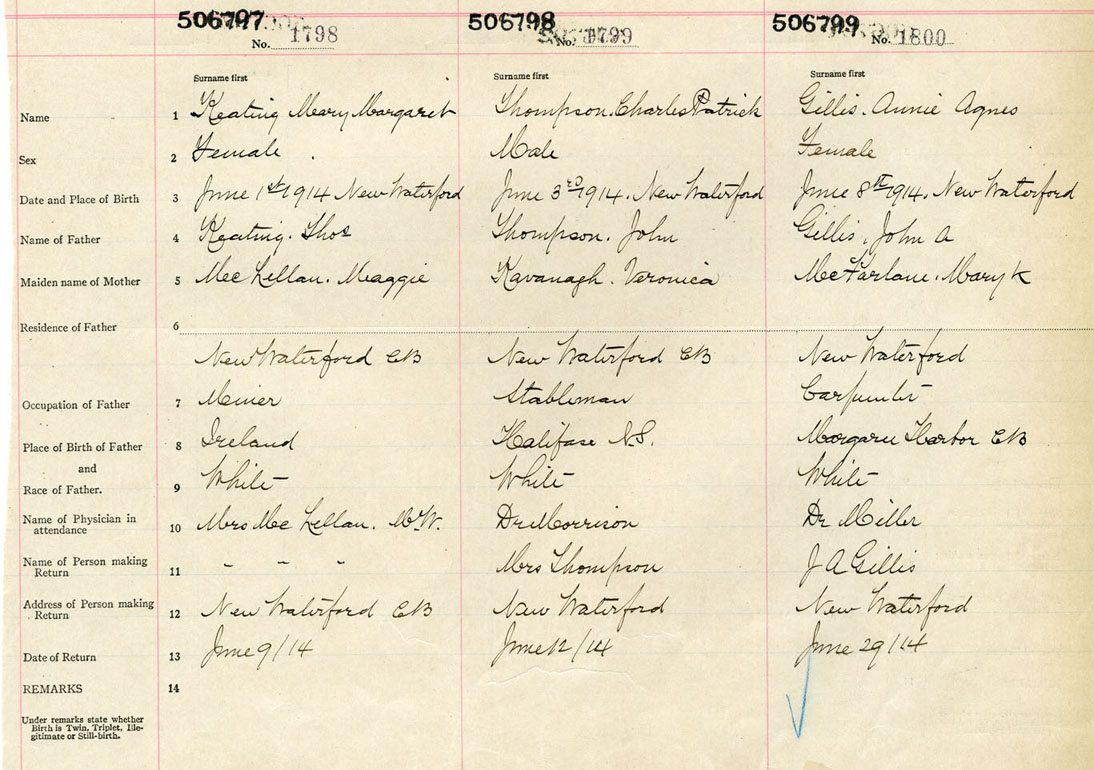 506797 506798 506799
No. 1798 No. 1799 No. 1800
Surname first Surname first Surname first
Name 1 Keating Mary Margaret Thompson. Charles Patrick Gillis. Annie Agnes
Sex 2 Female Male Female
Date and Place of Birth 3 June 1st 1914 New Waterford June 3rd 1914. New Waterford June 8th 1914. New Waterford
Name of Father 4 Keating. Thos Thompson. John Gillis, John A
Maiden name of Mother 5 Mc Lellan. Maggie Kavanagh. Veronica McFarlane. Mary K
Residence of Father 6
New Waterford CB New Waterford CB New Waterford
Occupation of Father 7 Miner Stableman Carpenter
Place of Birth of Father 8 Ireland Halifax N.S. Margaree Harbor CB
and
Race of Father. 9 White White White
Name of Physician in
attendance 10 Mrs Mc Lellan. M.W. Dr Morrison Dr Miller
Name of Person making
Return 11 " " " Mrs Thompson J A Gillis
Address of Person making
Return 12 New Waterford CB New Waterford New Waterford
Date of Return 13 June 9/14 June 12/14 June 29/14
REMARKS 14
Under remarks state whether
Birth is Twin, Triplet, Ille-
gitimate or Still-birth.